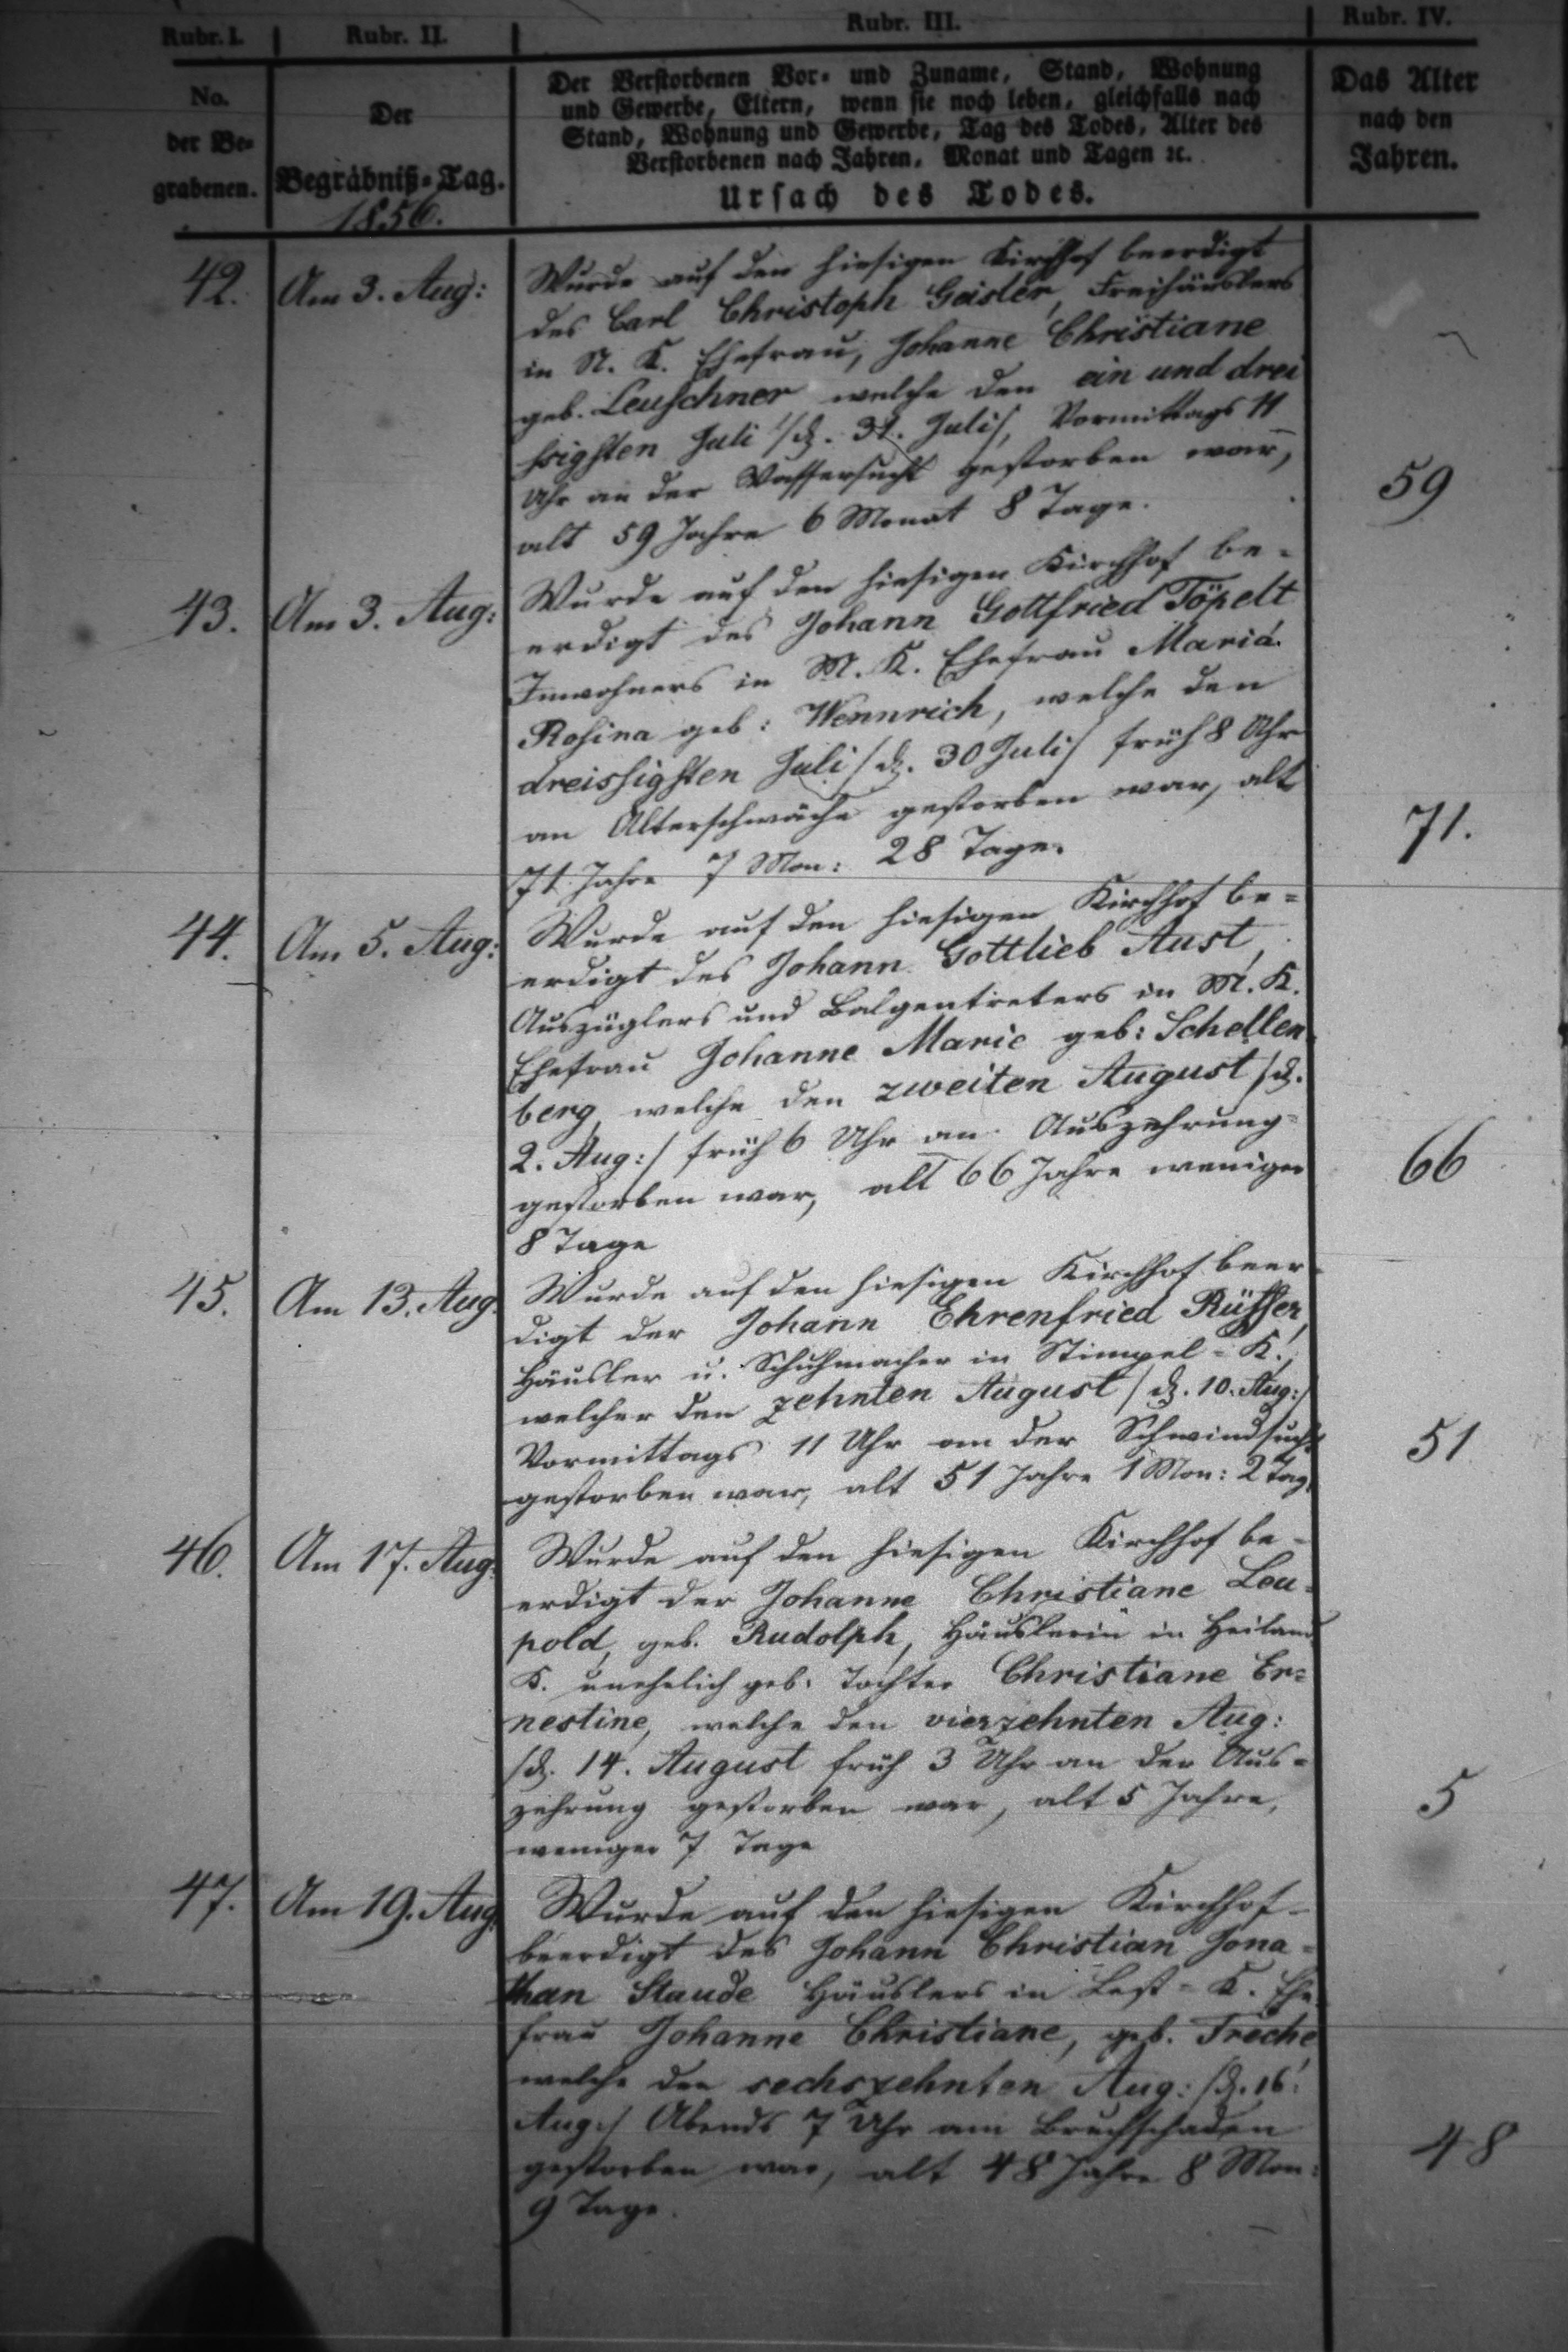 Rubr. I. Rubr. II. Rubr. III. Rubr. IV.
No.
der Be-
grabenen.
Der
Begräbniß-Tag.
1856.
Der Verstorbenen Vor- und Zuname, Stand, Wohnung
und Gewerbe, Eltern, wenn sie noch leben, gleichfalls nach
Stand, Wohnung und Gewerbe, Tag des Todes, Alter des
Verstorbenen nach Jahren, Monat und Tagen ꝛc.
Ursach des Todes.
Das Alter
nach den
Jahren.
42. Am 3. Aug: Wurde auf den hiesigen Kirchhof beerdigt
des Carl Christoph Geisler, Freihäuslers
in N. K. Ehefrau, Johanne Christiane
geb. Leuschner welche den ein und drei
ssigsten Juli /d. 31. Juli/, Vormittags 11
Uhr an der Wassersucht gestorben war,
alt 59 Jahre 6 Monat 8 Tage. 59
43. Am 3. Aug: Wurde auf den hiesigen Kirchhof be-
erdigt des Johann Gottfried Töpelt
Inwohners in M. K. Ehefrau Maria
Rosina geb: Wennrich, welche den
dreissigsten Juli /d. 30 Juli/ früh 8 Uhr
an Alterschwäche gestorben war, alt
71 Jahre 7 Mon: 28 Tage. 71.
44. Am 5. Aug: Wurde auf den hiesigen Kirchhof be-
erdigt des Johann Gottlieb Aust,
Auszüglers und Balgentreters in M. K.
Ehefrau Johanne Marie geb: Schellen
berg, welche den zweiten August /d.
2. Aug:/ früh 6 Uhr an Auszehrung
gestorben war, alt 66 Jahre weniger 66
8 Tage
45. Am 13. Aug. Wurde auf den hiesigen Kirchhof beer-
digt der Johann Ehrenfried Rüffer,
Häusler u. Schuhmacher in Stimpel-K.,
welcher den zehnten August /d. 10. Aug:/
Vormittags 11 Uhr an der Schwindsucht 51
gestorben war, alt 51 Jahre 1 Mon: 2 Tag
46. Am 17. Aug: Wurde auf den hiesigen Kirchhof be-
erdigt der Johanne Christiane Leu-
pold, geb. Rudolph, Häuslerin in Heiland
K. unehelich geb. Tochter Christiane Er-
nestine, welche den vierzehnten Aug:
/d. 14. August früh 3 Uhr an der Aus-
zehrung gestorben war, alt 5 Jahre, 5
weniger 7 Tage
47. Am 19. Aug. Wurde auf den hiesigen Kirchhof
beerdigt des Johann Christian Jona-
than Staude Häuslers in Lest-K. Ehe
frau Johanne Christiane, geb. Treche
welche den sechszehnten Aug: /d. 16.
Aug:/ Abends 7 Uhr am Bruchschaden
gestorben war, alt 48 Jahre 8 Mon: 48
9 Tage.